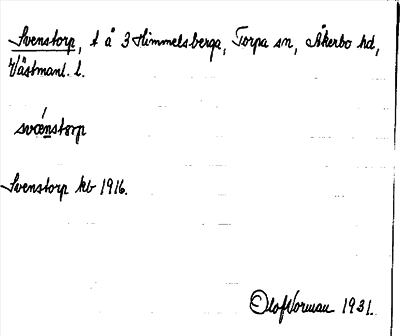 Svenstorp, t å 3 Himmelsberga, Torpa sn, Åkerbo hd,
Västmanl. l.
svænstorp
Svenstorp kb 1916.
Olof Norman 1931.